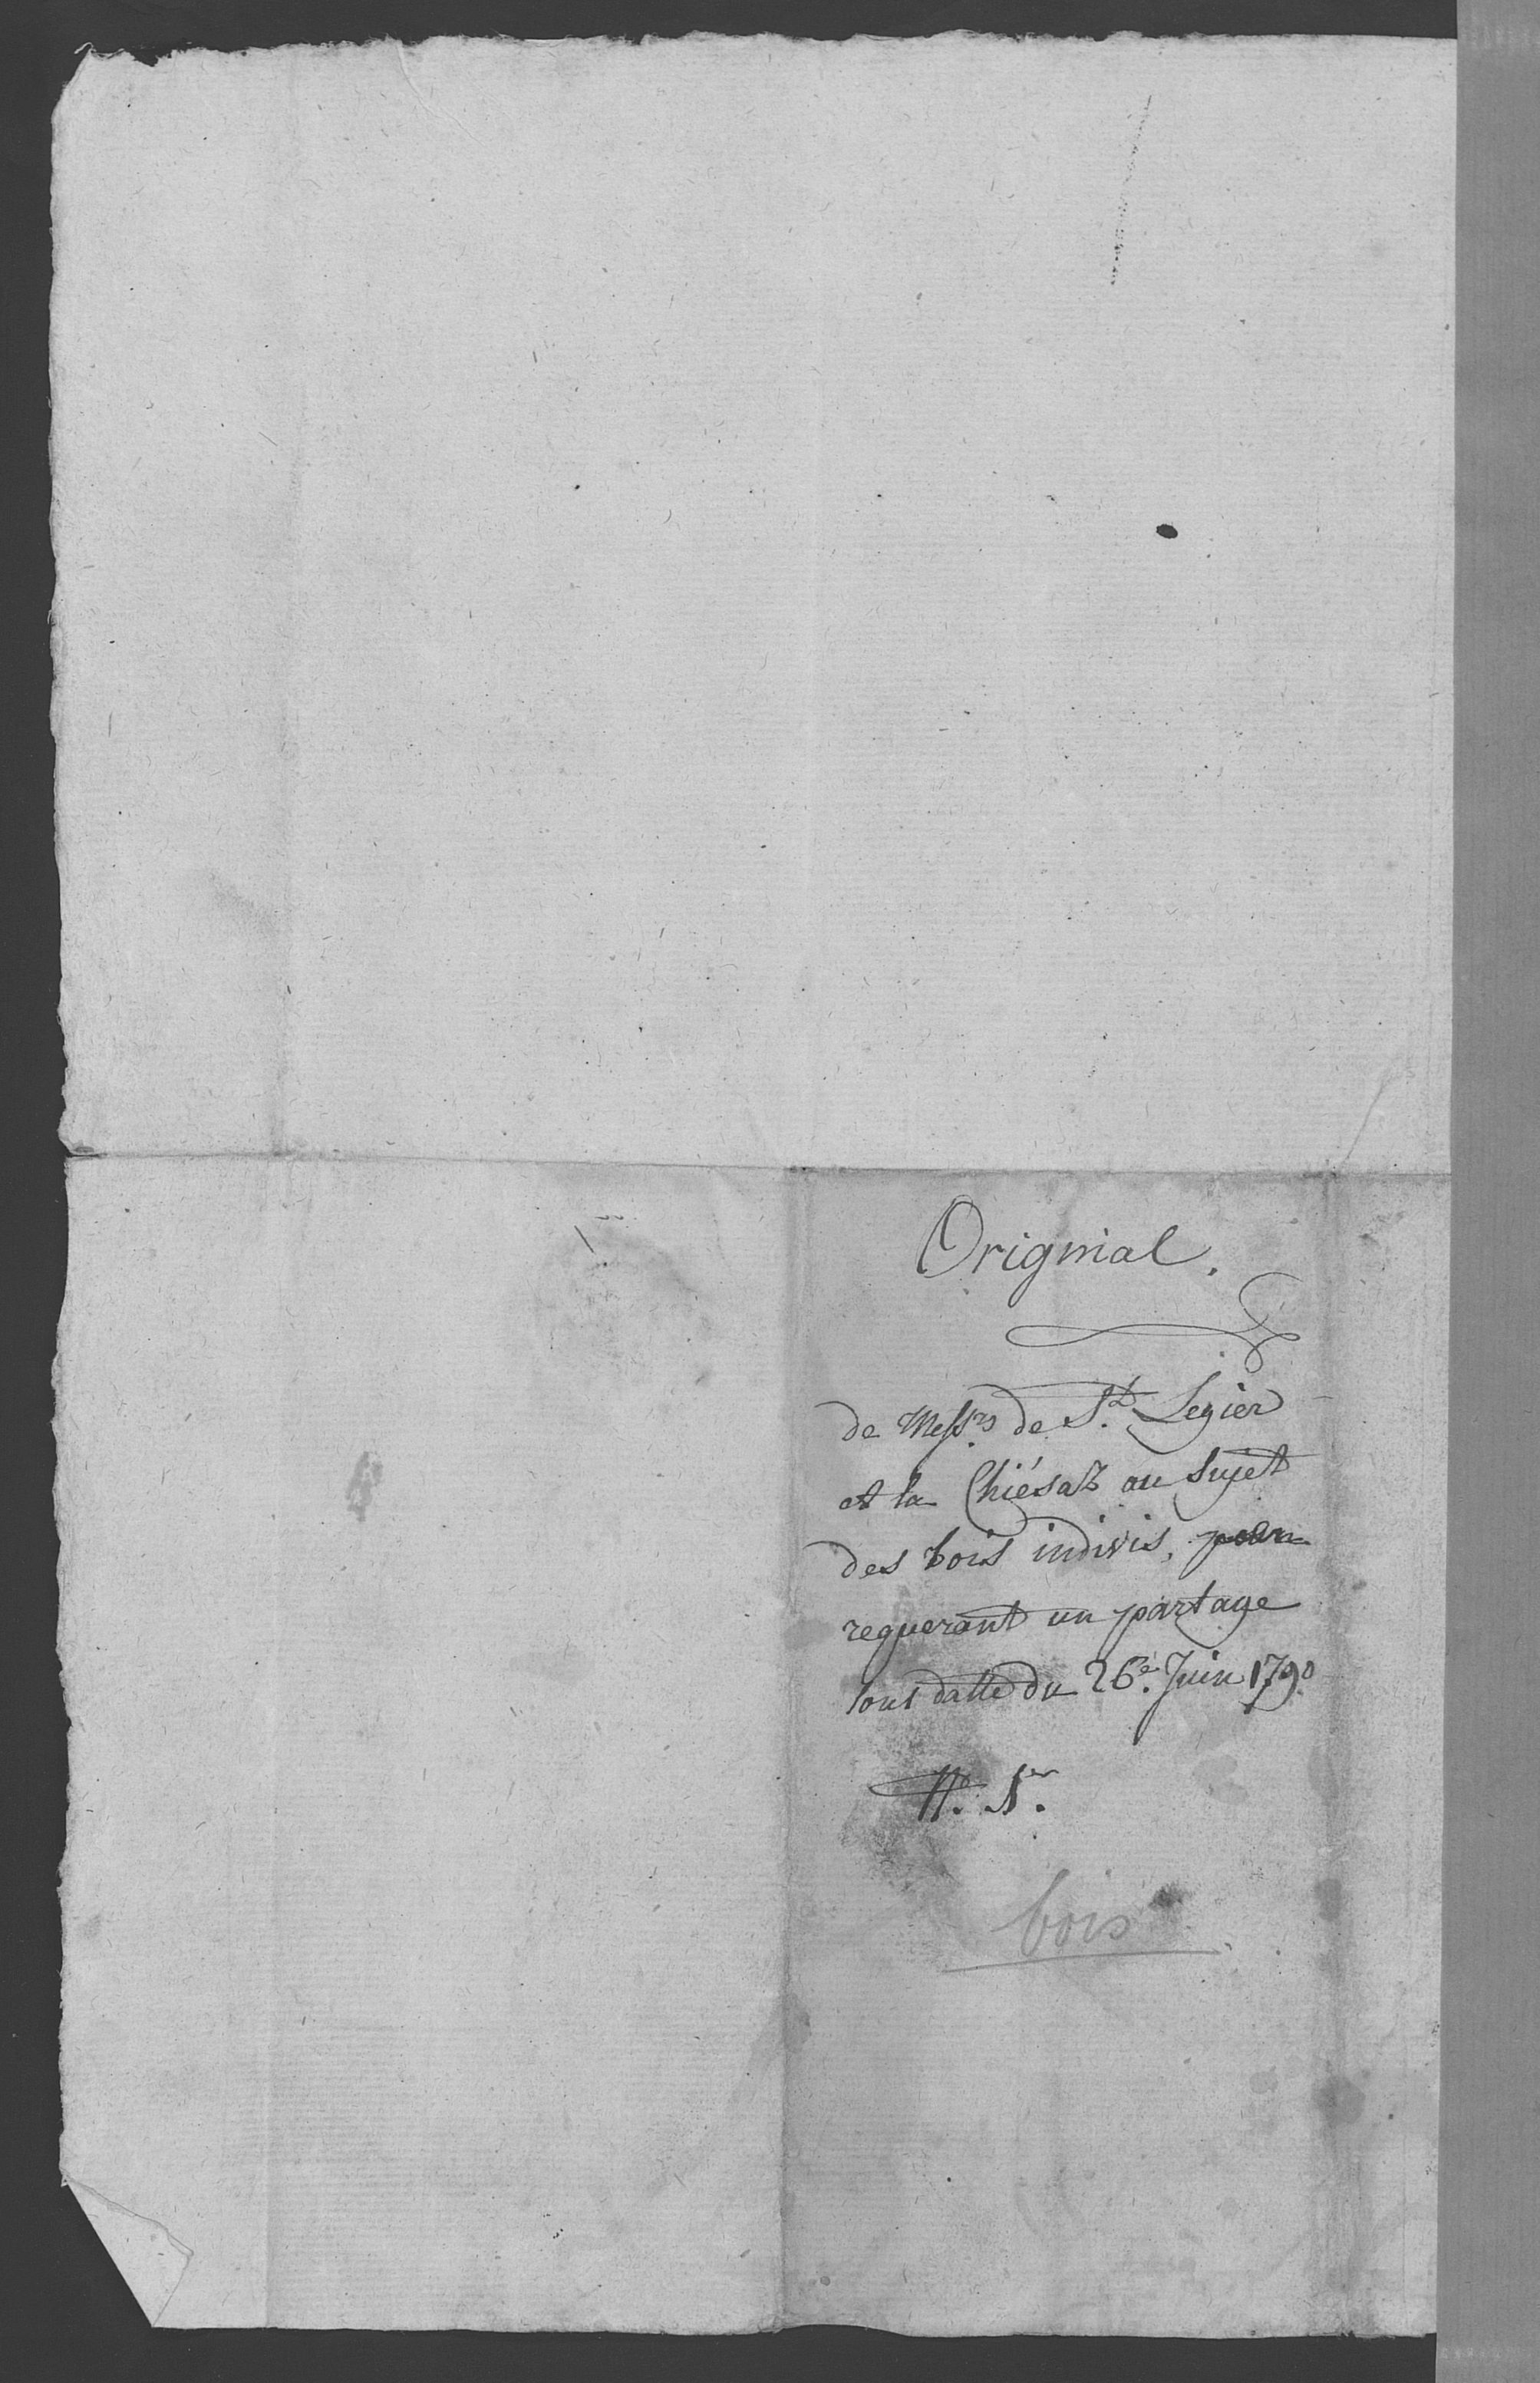 Original.
de Messrs de St. Legier
et la Chiésaz au sujet
des bois indivis,
requerant un partage
sous datte du 26e. Juin 1790
bois